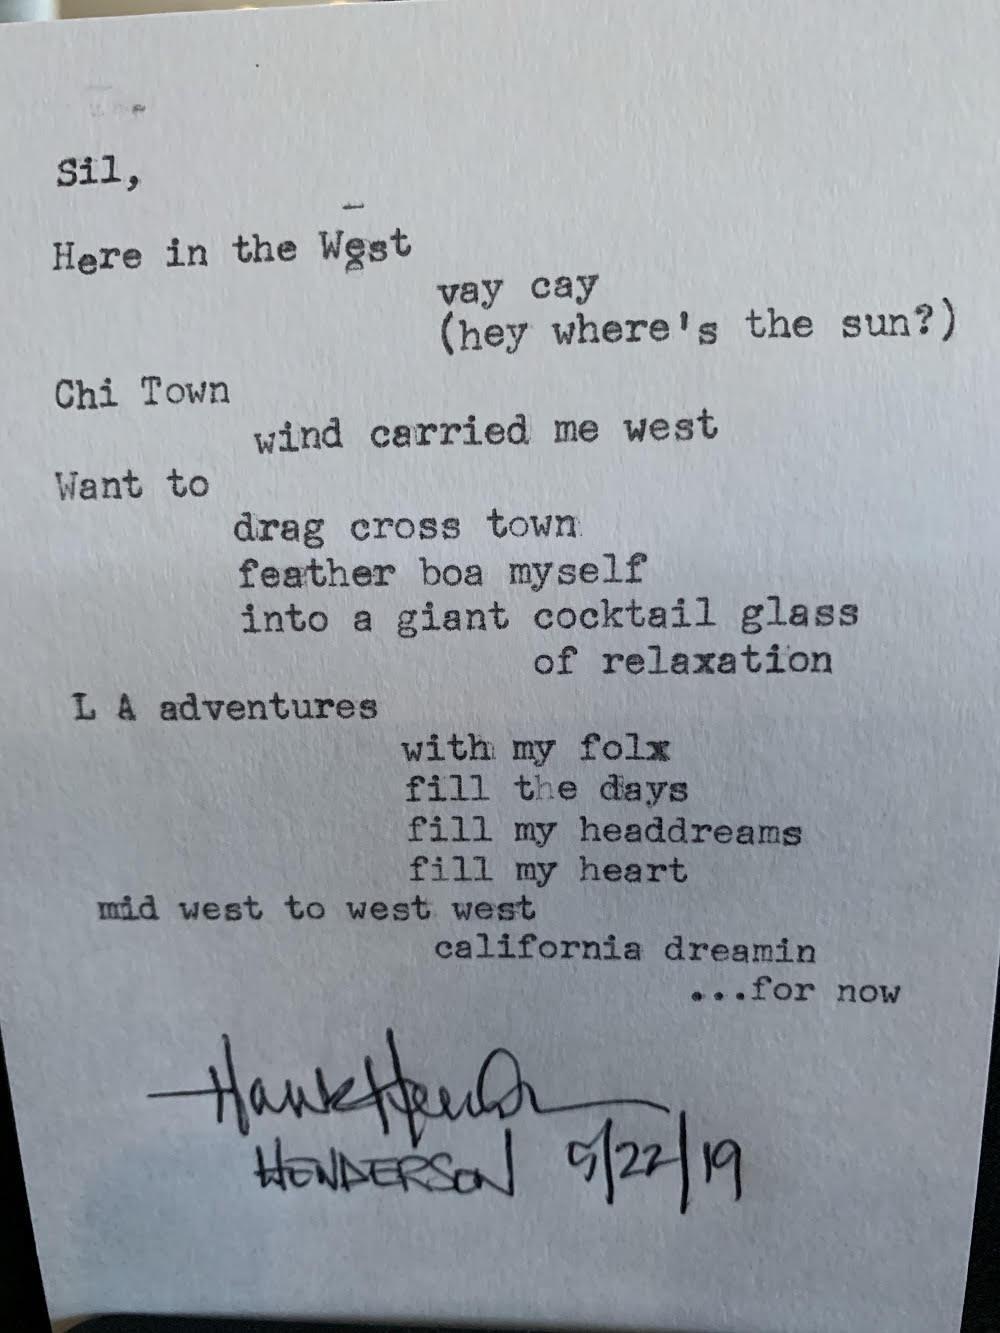 Sil,
Here in the West
vay cay
(hey where's the sun?)
Chi Town
wind carried me west
Want to
drag cross town
feather boa myself
into a giant cocktail glass
of relaxation
L A adventures
with my folx
fill the days
fill my headdreams
fill my heart
mid west to west west
california dreamin
...for now
Hank Henderson
HENDERSON 5/22/19